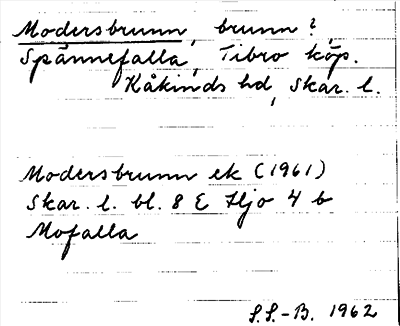 Modersbrunn, brunn?,
Spännefalla, Tibro köp.
Kåkinds hd, Skar. l.
Modersbrunn ek (1961)
Skar. l. bl. 8 E Hjo 4 b
Mofalla
S.S.-B. 1962